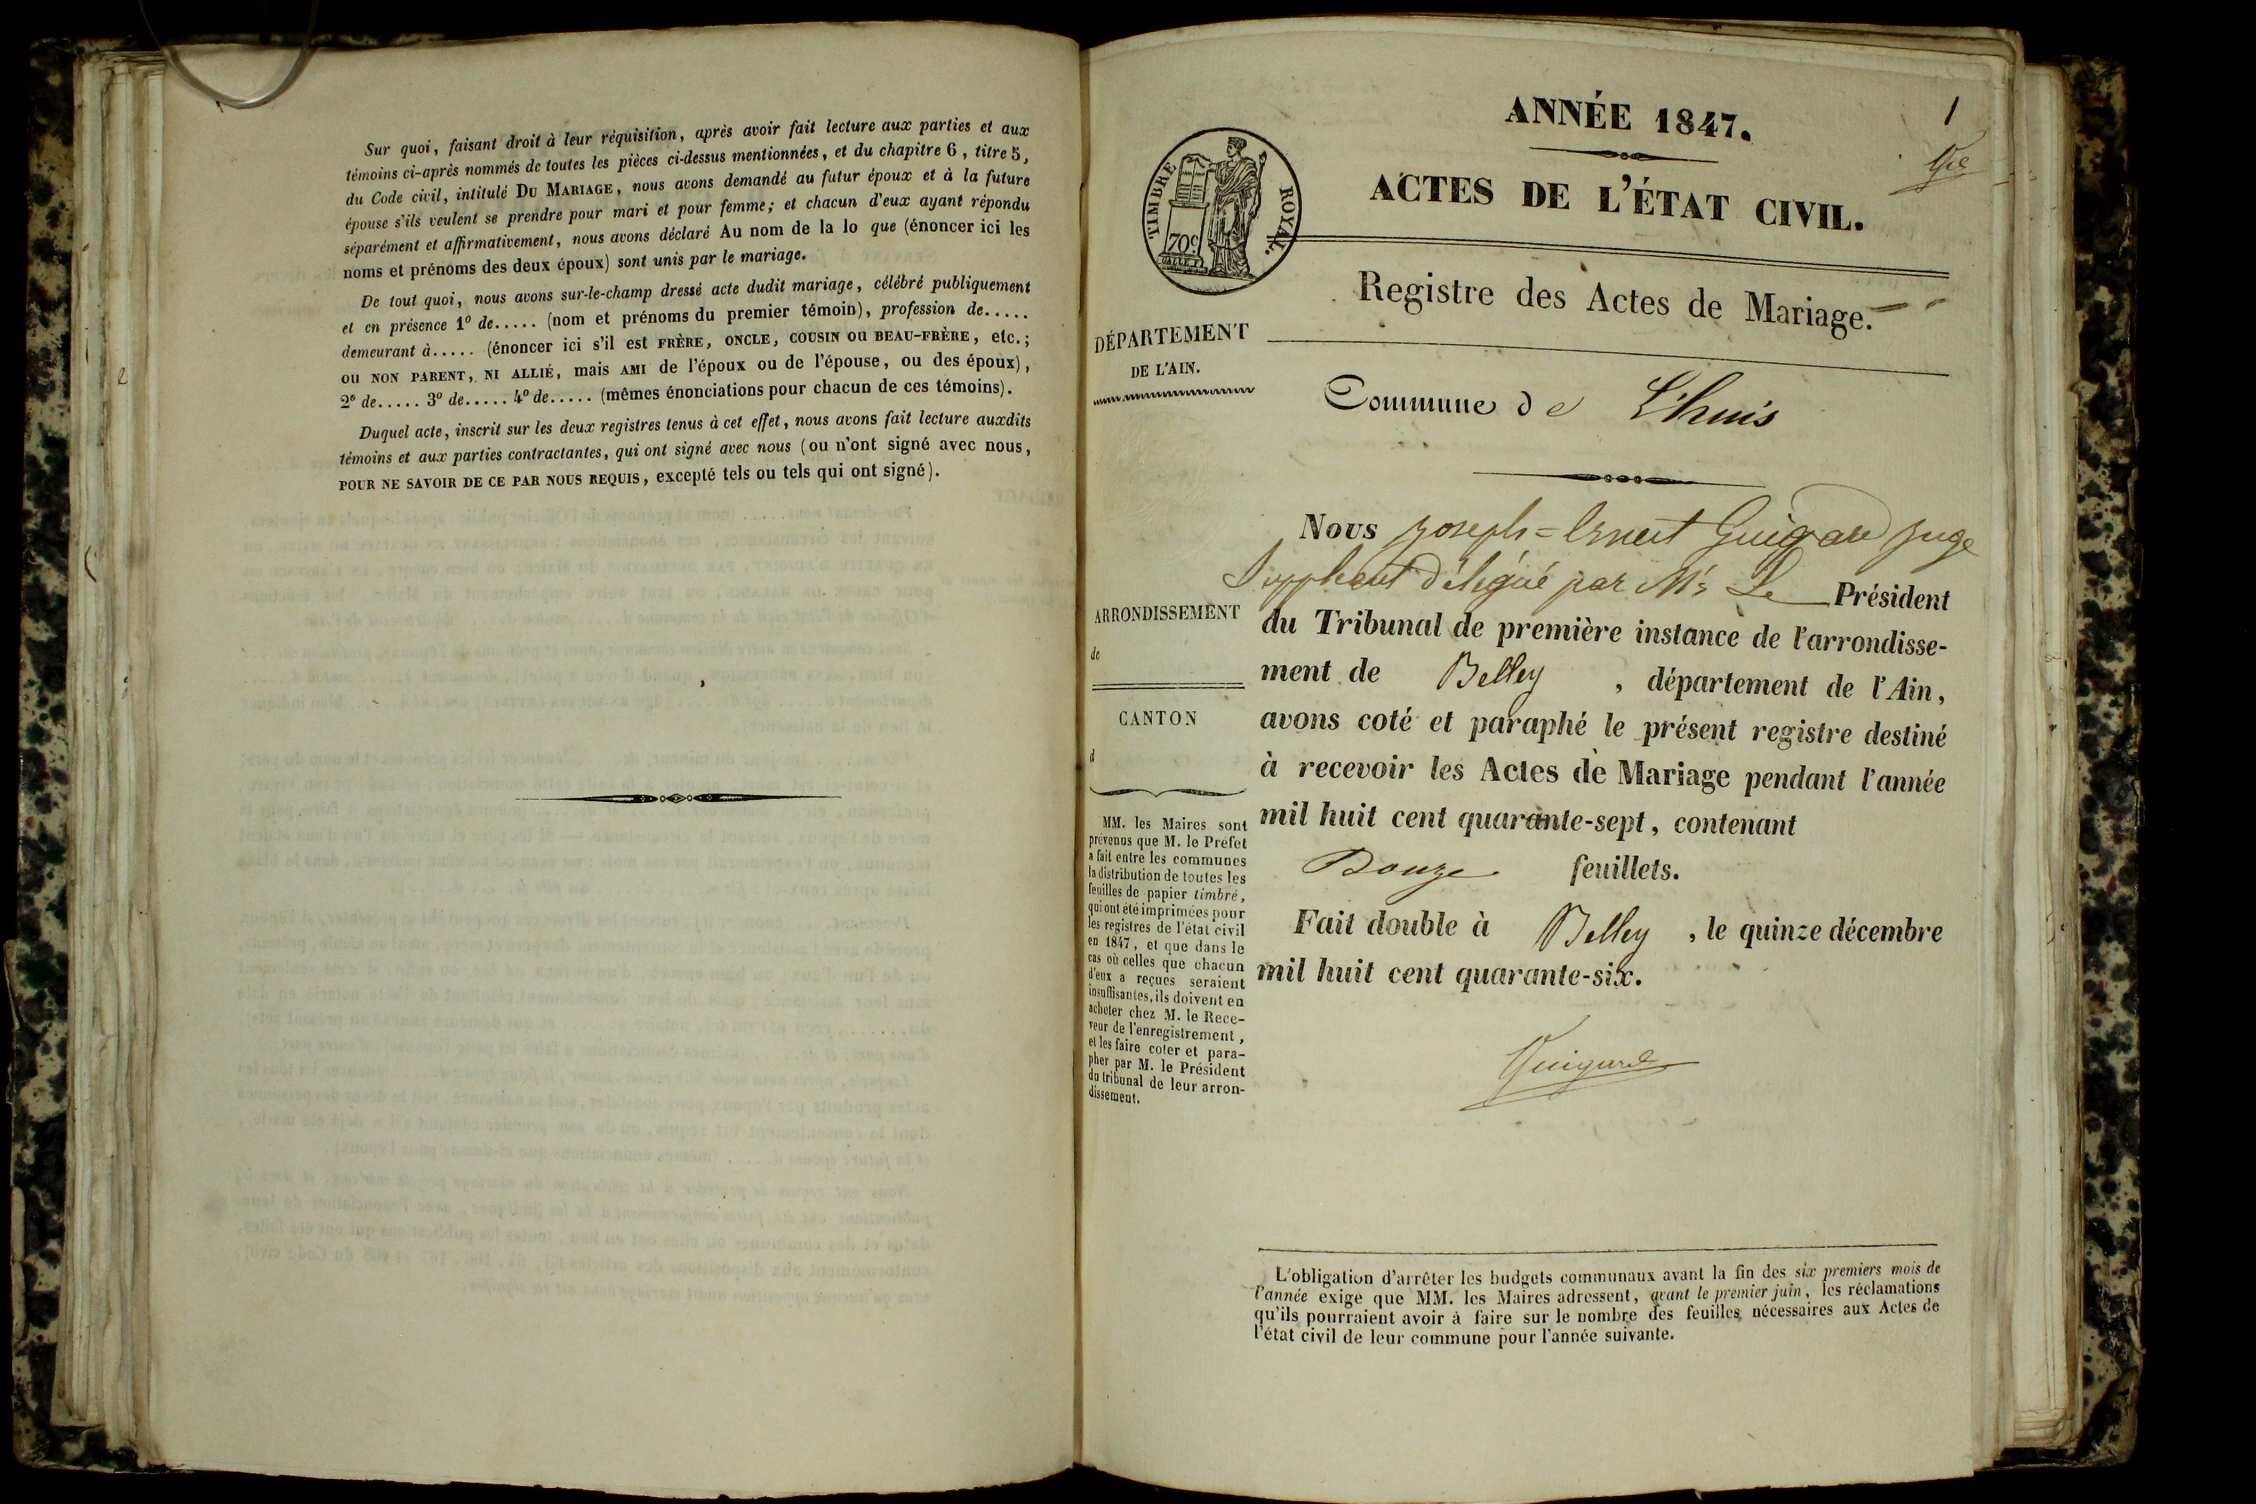 Sur quoi, faisant droit à leur réquisition, après avoir fait lecture aux parties et aux
témoins ci-après nommés de toutes les pièces ci-dessus mentionnées, et du chapitre 6, titre 5,
du Code civil, intitulé DU MARIAGE, nous avons demandé au futur époux et à la future
épouse s'ils veulent se prendre pour mari et pour femme; et chacun d'eux ayant répondu
séparément et affirmativement, nous avons déclaré Au nom de la lo que (énoncer ici les
noms et prénoms des deux époux) sont unis par le mariage.
De tout quoi, nous avons sur-le-champ dressé acte dudit mariage, célébré publiquement
et en présence 1º de..... (nom et prénoms du premier témoin), profession de.....
demeurant à..... (énoncer ici s'il est FRÈRE, ONCLE, COUSIN OU BEAU-FRÈRE, etc.;
ou NON PARENT, NI ALLIÉ, mais AMI de l'époux ou de l'épouse, ou des époux),
2º de..... 3º de..... 4º de..... (mêmes énonciations pour chacun de ces témoins).
Duquel acte, inscrit sur les deux registres tenus à cet effet, nous avons fait lecture auxdits
témoins et aux parties contractantes, qui ont signé avec nous (ou n'ont signé avec nous,
POUR NE SAVOIR DE CE PAR NOUS REQUIS, excepté tels ou tels qui ont signé).
1
ANNÉE 1847.
ACTES DE L'ÉTAT CIVIL.
TIMBRE ROYAL.
70c
Registre des Actes de Mariage.
DÉPARTEMENT
DE L'AIN.
Commune de L'huis
Nous Joseph=Ernest Guigard juge
Suppléant délégué par Mr Le Président
ARRONDISSEMENT
de
du Tribunal de première instance de l'arrondisse-
ment de Belley, département de l'Ain,
CANTON
d
avons coté et paraphé le présent registre destiné
à recevoir les Actes de Mariage pendant l'année
mil huit cent quarante-sept, contenant
Douze feuillets.
Fait double à Belley, le quinze décembre
mil huit cent quarante-six.
Guigard
MM. les Maires sont
prévenus que M. le Préfet
a fait entre les communes
la distribution de toutes les
feuilles de papier timbré,
qui ont été imprimées pour
les registres de l'état civil
en 1847, et que dans le
cas où celles que chacun
d'eux a reçues seraient
insuffisantes, ils doivent en
acheter chez M. le Rece-
veur de l'enregistrement,
et les faire coter et para-
pher par M. le Président
du tribunal de leur arron-
dissement.
L'obligation d'arrêter les budgets communaux avant la fin des six premiers mois de
l'année exige que MM. les Maires adressent, avant le premier juin, les réclamations
qu'ils pourraient avoir à faire sur le nombre des feuilles nécessaires aux Actes de
l'état civil de leur commune pour l'année suivante.